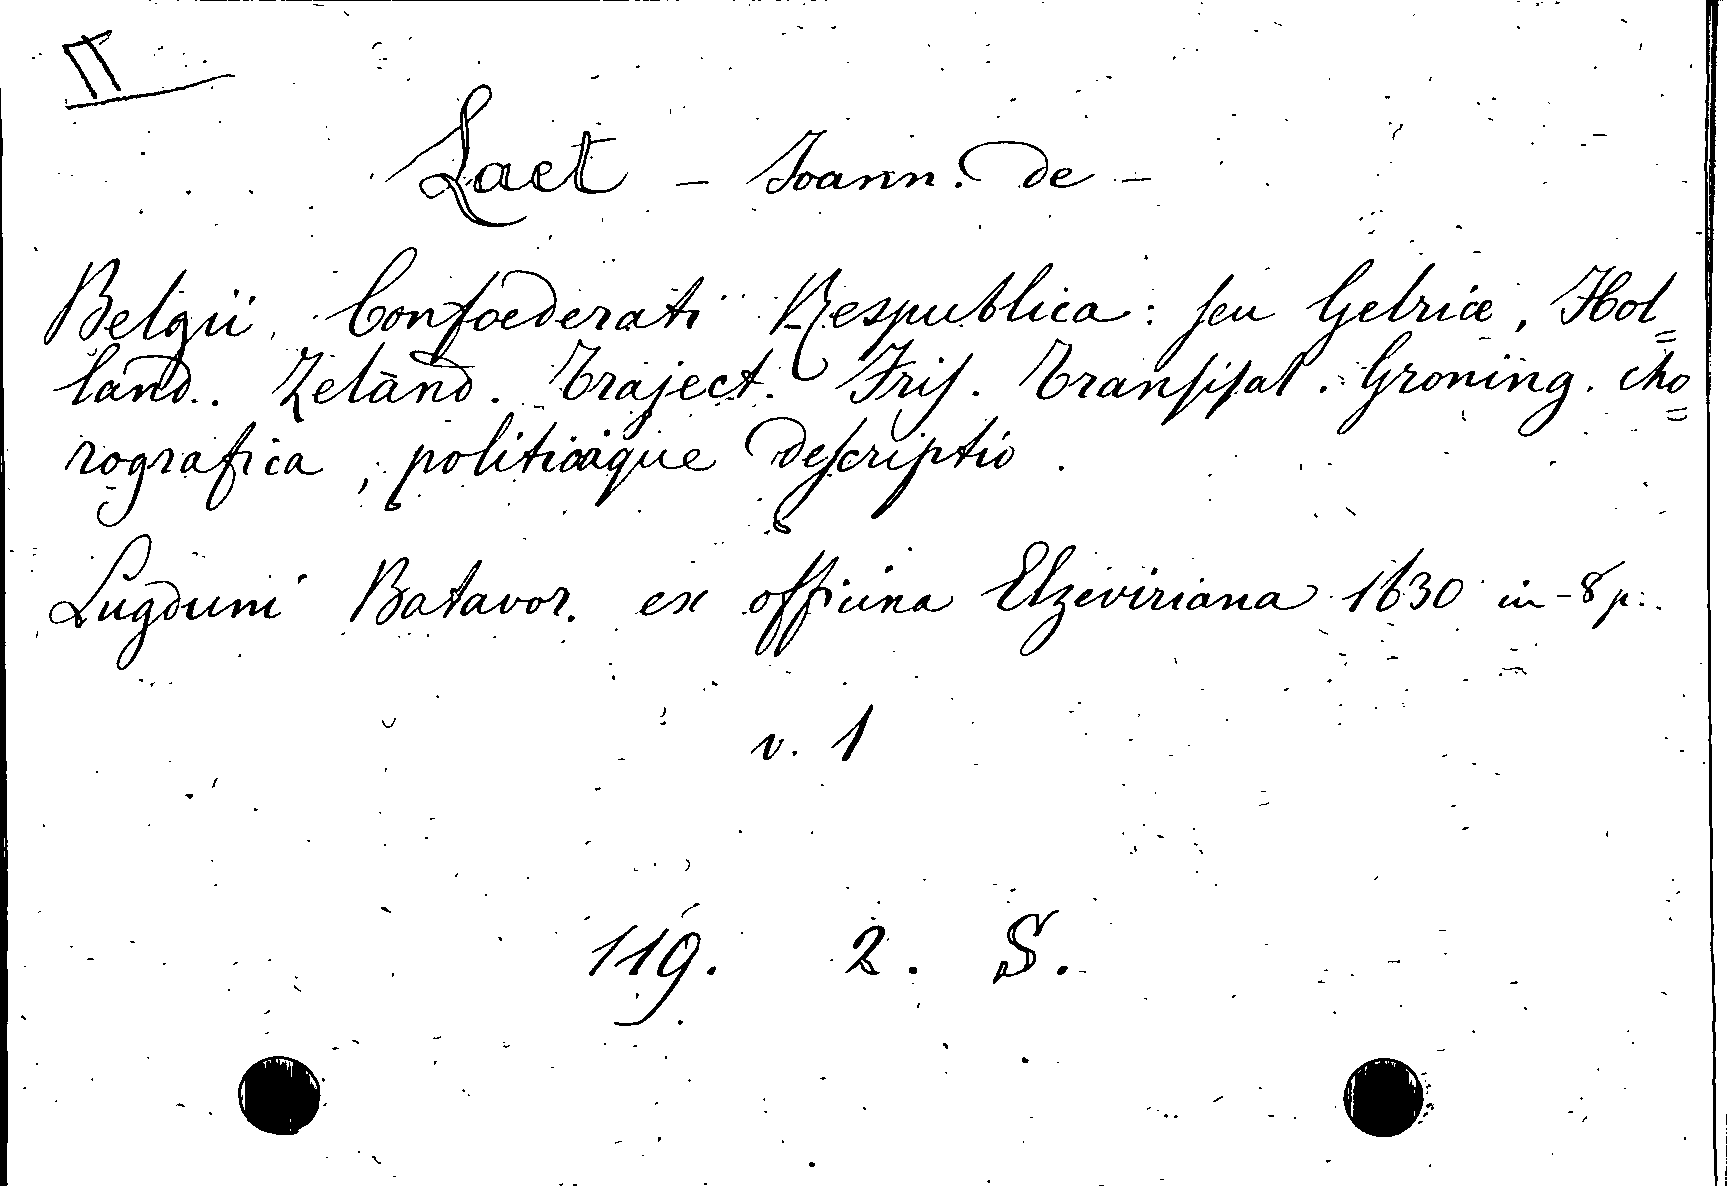 II
Laet – Joann. de –
Belgii Confoederati Respublica: seu Gelriæ, Hol=
land. Zeland. Traject. Fris. Transisal. Groning. cho=
rografica, politicaque descriptio.
Lugduni Batavor. ex officina Elzeviriana 1630 in-8 p:.
v. 1
119. 2. S.